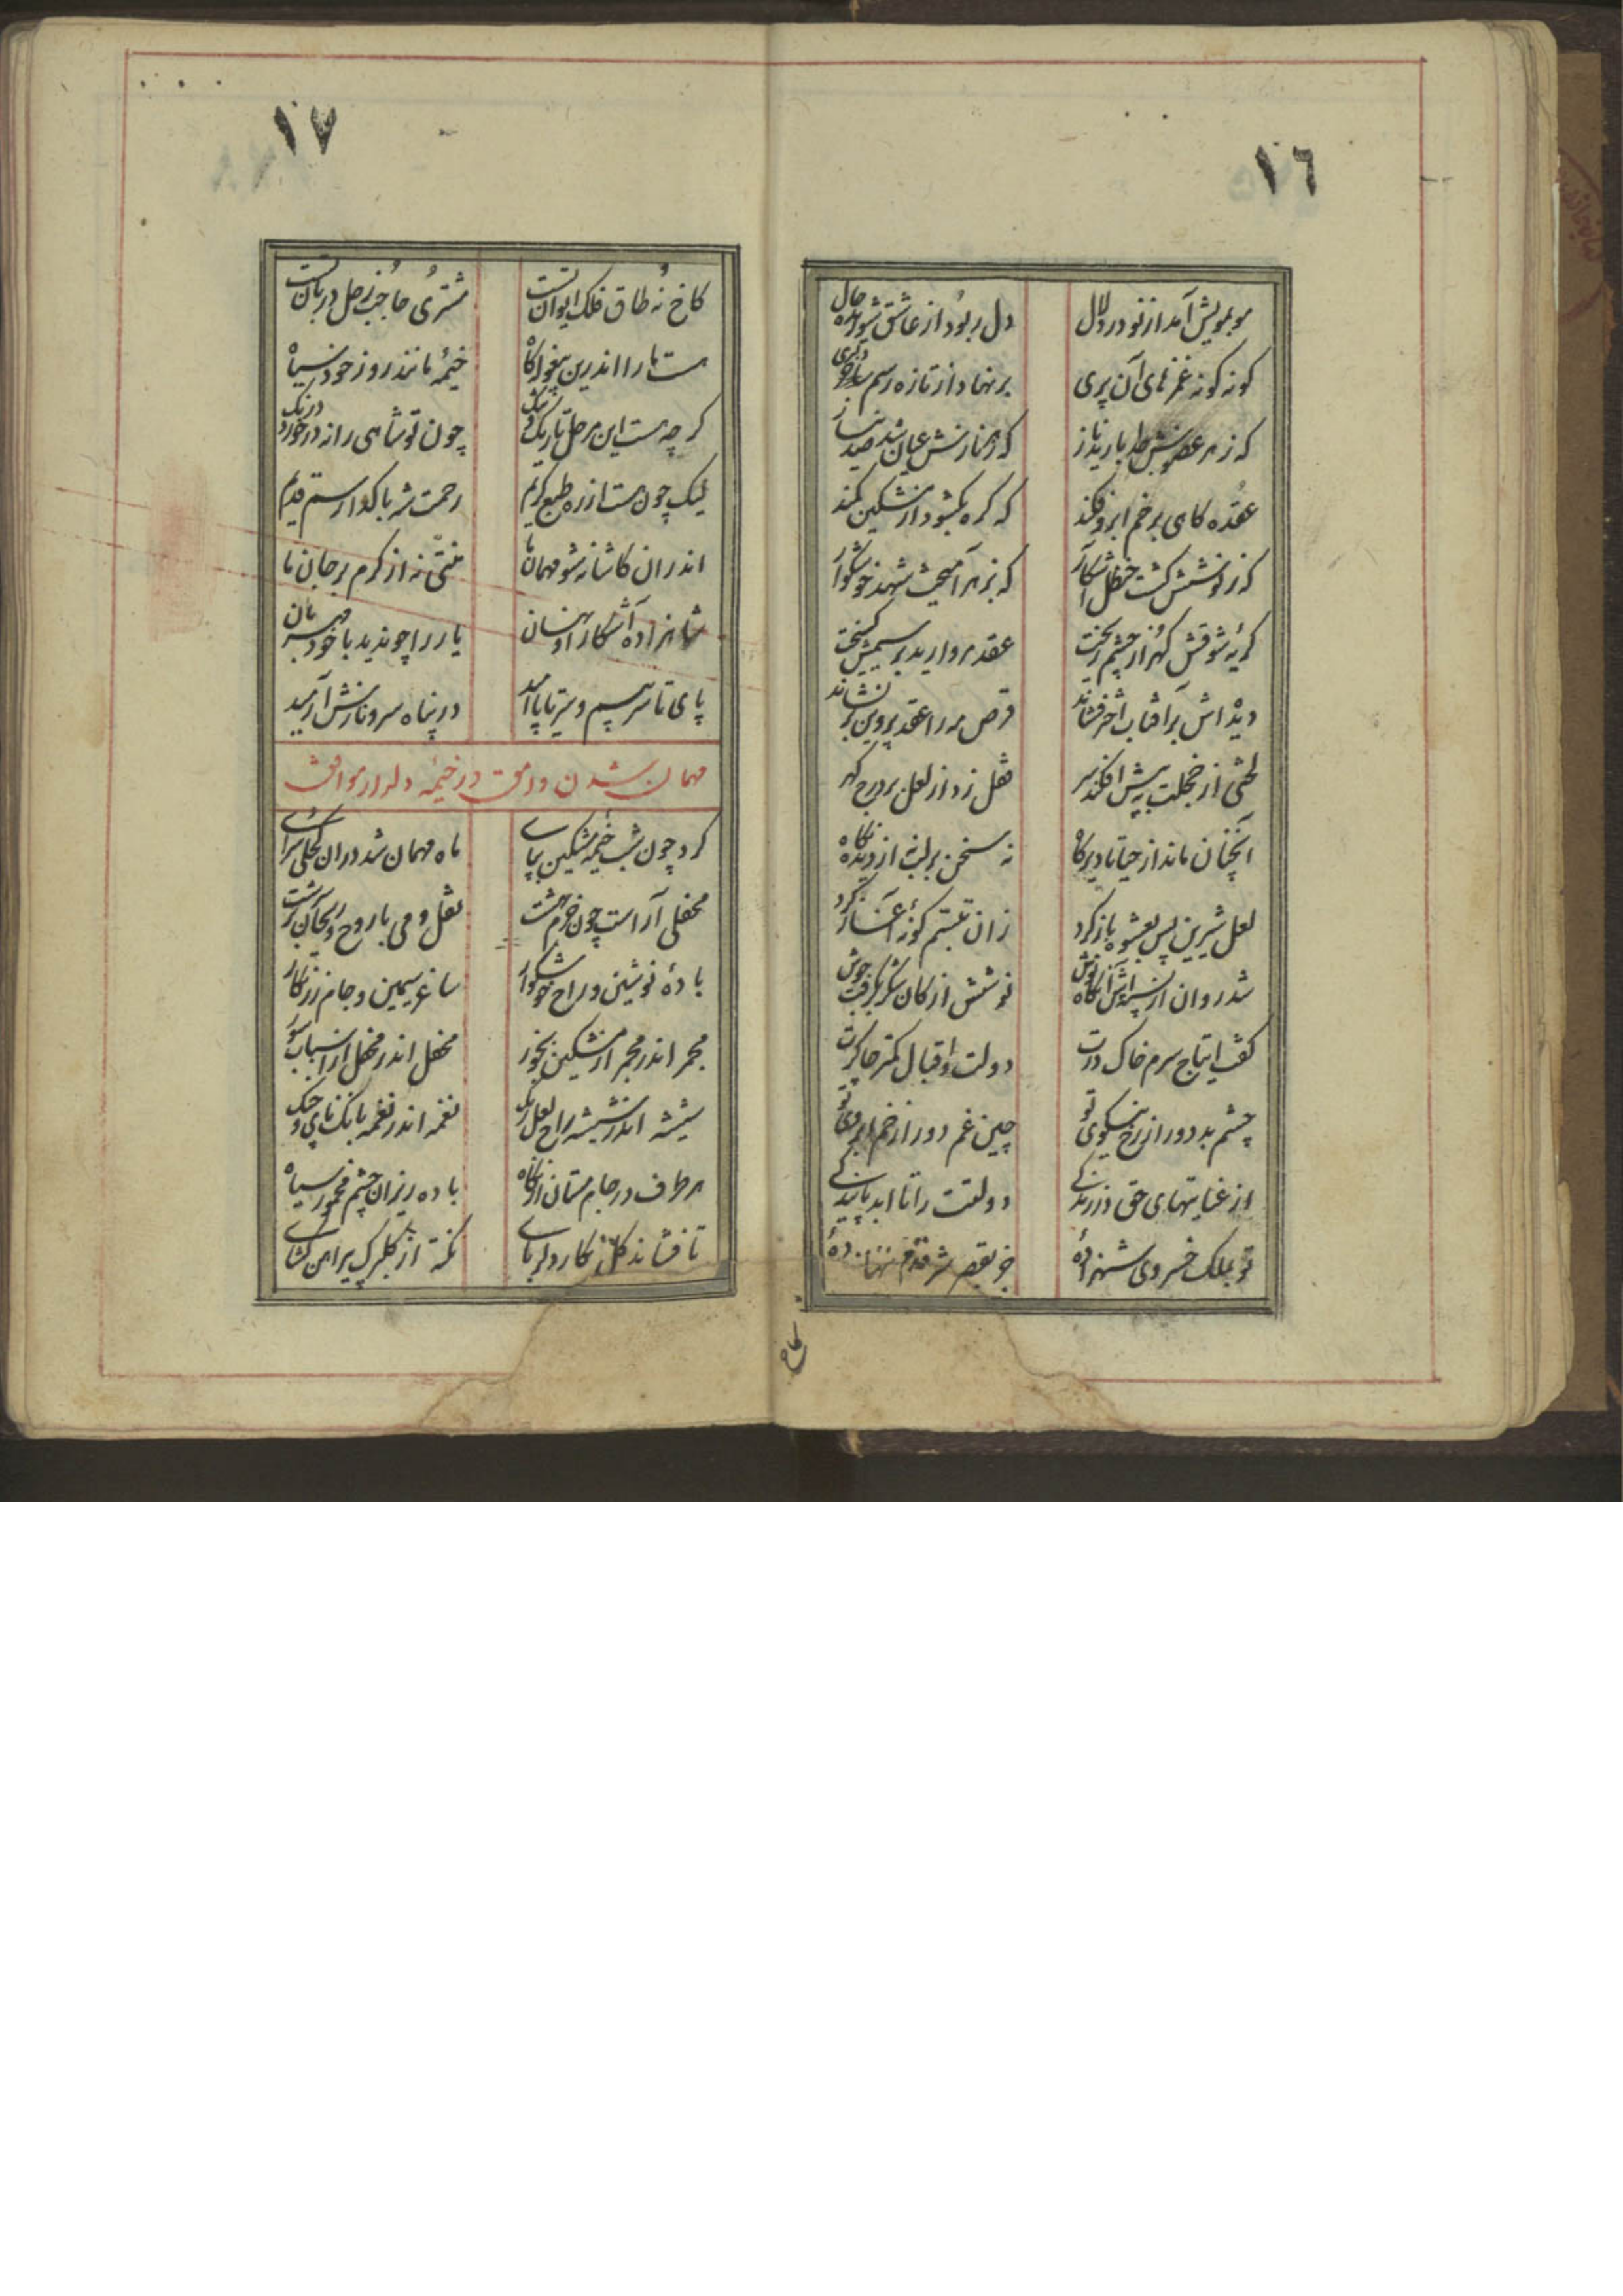 ١٦
موبمویش آمد از نو در دلال
دل ربود از عاشق شوریده حال
کونه کونه غمزهای آن پری
بر نهاد از تازه رسم دلبری
که ز هر عضویش بار یاز ناز
که ز هنارش عیان شد صد نیاز
عقده کاهی بر خم ابرو فکند
که کره بکشود از مشکین کمند
که ز نوشش کشت حنظل آشکار
که بزهر آمیخت شهد خوشکوار
کریهٔ شوقش کهر از چشم ریخت
عقد مروارید بر سیمش کسیخت
دیده اش بر آفتاب اختر فشاند
قرص مه را عقد پروین بر نشاند
لختی از خجلت به پیش افکند سر
قفل زد از لعل بر درج کهر
آنچنان ماند از حیا تا دیرکاه
نه سخن بر لب نه از دیده نکاه
لعل شیرین پس بعشوه باز کرد
زان تبسم کونهٔ آغاز کرد
شد روان از
نوشش از کان شکر بکرفت جوش
کفت ایتاج سرم خاک درت
دولت و اقبال کمتر چاکرت
چشم بد دور از رخ نیکوی تو
چین غم دور از خم ابروی تو
از عنایتهای حق در زندکے
دولتت را تا ابد پایندکے
تو بملک خسروی شهزادهٔ
جز بقصر شه قدم ننهادهٔ
کاخ
١٧
کاخ نه طاق فلک ایوان تست
مشتری حاجب زحل دربان تست
هست ما را اندرین بیغوله کاه
خیمهٔ مانند روز خود سیاه
کر چه هست این مرحل تاریک و تنک
چون تو شاهی را نه در خورد درنک
لیک چون هست از ره طبع کریم
رحمت شه با کدا رسم قدیم
اندر ان کاشانه شو مهمان ما
منتی نه از کرم بر جان ما
شاهزاده آشکار او نهان
یار را چو ندید با خود مهربان
پای تا سر سیم و سر تا پا امید
در پناه سرو نازش آرمید
مهمان شدن وامق در خیمهٔ دلدار موافق
کرد چون شب خیمهٔ مشکین بپاے
ماه مهمان شد در ان کحلی سراے
محفلی آراست چون خرم بهشت
نقل و می با روح و ریحان سرشت
بادهٔ نوشین و راح خوشکوار
ساغر سیمین و جام زرنکار
مجمر اندر مجمر از مشکین بخور
محفل اندر محفل از اسباب سور
شیشه اندر شیشه راح لعل رنک
نغمه اندر نغمه بانک نای و چنک
هر طرف در جام مستان از نکاه
باده ریزان چشم مخمور سیاه
تا فشاند کل نکار دلرباے
نکته از کلبرک پیراهن کشاے